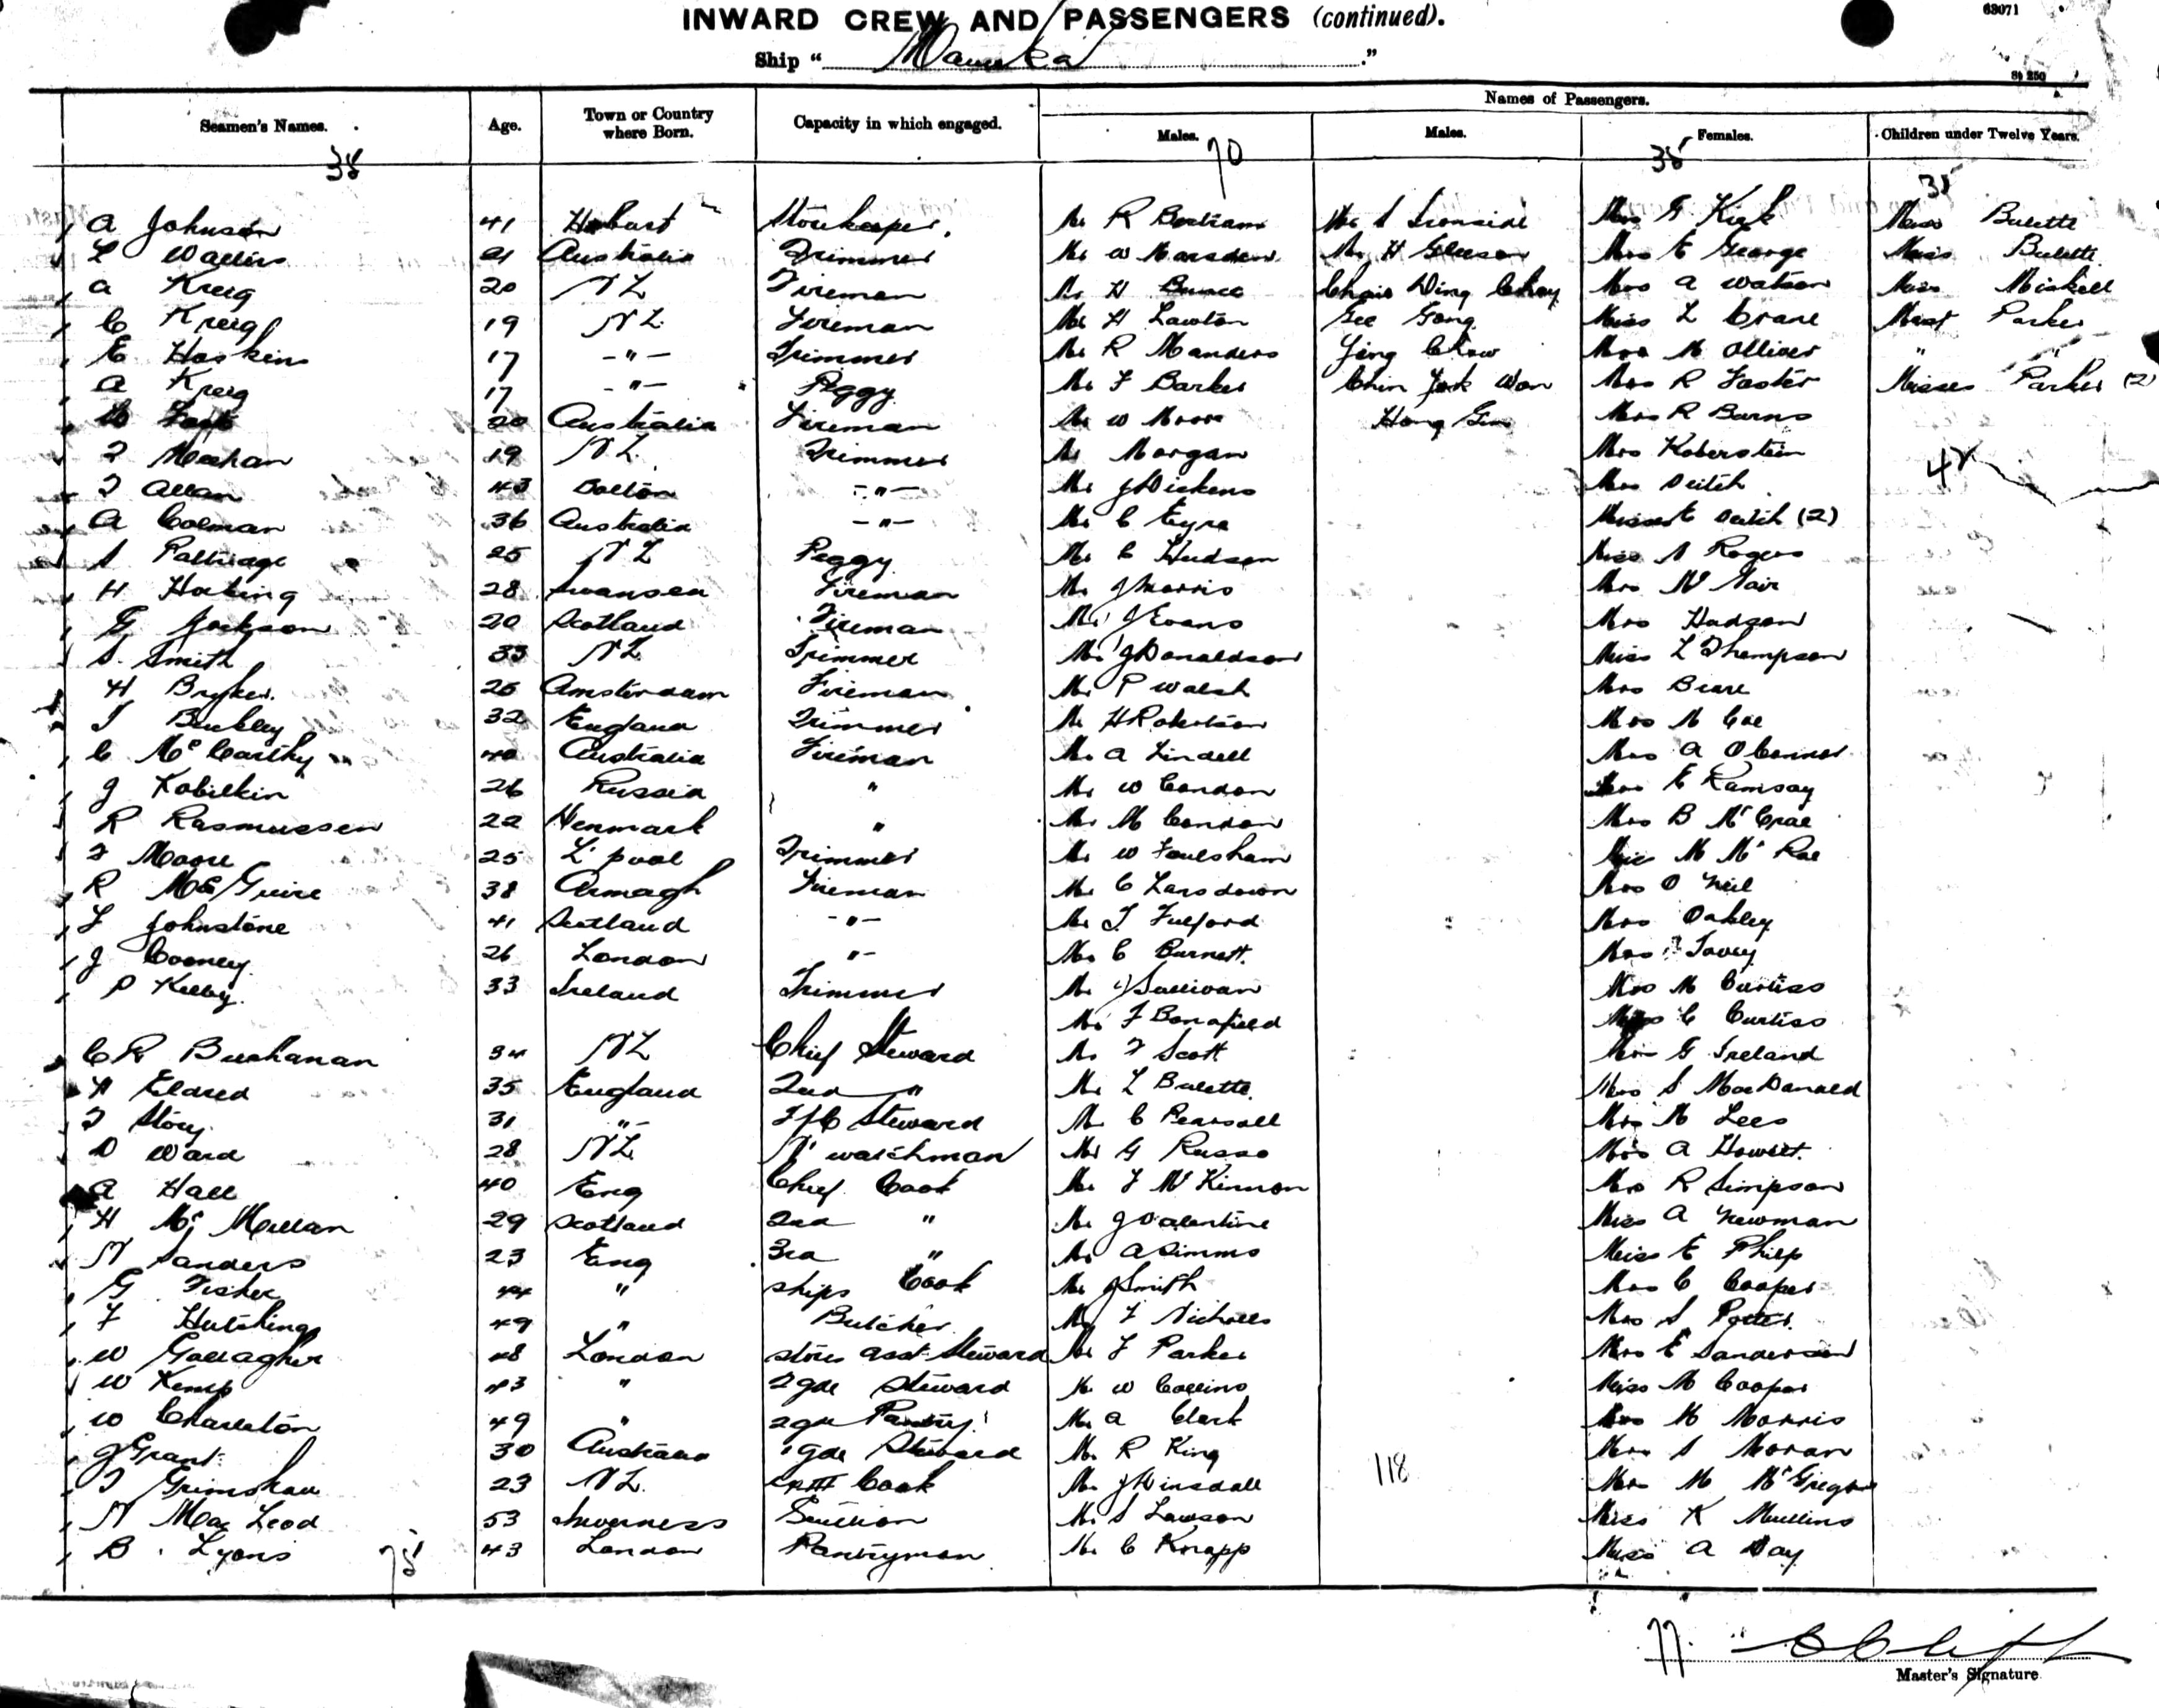 63071
INWARD CREW AND PASSENGERS (continued).
Ship " Manuka ."
St 250
Names of Passengers.
Seamen's Names. Age. Town or Country where Born. Capacity in which engaged. Males. Males. Females. Children under Twelve Years.
38 70 38 38
A Johnson 41 Hobart Storekeeper. Mr R Bertram Mr S Ironside Mrs G Kirk Miss Bulette
L Walters 21 Australia Trimmer Mr W Marsden Mr H Gleeson Mrs E George Miss Bulette
A Kreig 20 NZ Fireman Mr H Bunce Wing Mrs A Watson Miss Miskell
C Kreig 19 NZ. Fireman Mr H Lawton Gee Gong Miss L Crane Mast Parker
E Hoskins 17 -"- Trimmer Mr R Manders Ying Chow Mrs M Olliver " "
A Kreig 17 -"- Peggy Mr F Barker Chin Wan Mrs R Foster Misses Parker (2)
20 Australia Fireman Mr W Moore Hong Mrs R Burns
T Meehan 19 NZ. Trimmer Mr Morgan Mrs Koberstein
T Allan 43 Bolton -"- Mr J Dickens Mrs Deitch 42
A Colman 36 Australia -"- Mr C Eyre Misses Deitch (2)
S 25 NZ Peggy Mr C Hudson Miss A Rogers
H Hoking 28 Swansea Fireman Mr J Morris Mrs Nair
G Jackson 20 Scotland Fireman Mr J Evans Mrs Hudson
S. Smith 33 NZ Trimmer Mr J Donaldson Miss L Thompson
H 25 Amsterdam Fireman Mr P Walsh Mrs Beare
T Buckley 32 England Trimmer Mr H Robertson Mrs M Coe
C McCarthy 40 Australia Fireman Mr A Lindell Mrs A OConnor
J Kobilkin 26 Russia " Mr W Condon Mrs E Ramsay
R Rasmussen 22 Denmark " Mr M Condon Mrs B McCrae
T Moore 25 L'pool Trimmer Mr W Foulsham Miss M McRae
R McGuire 38 Armagh Fireman Mr C Lansdown Mrs O Neil
F Johnstone 41 Scotland -"- Mr T Fulford Mrs Oakley
J Cooney 26 London "- Mr C Burnett. Mrs Tovey
P Kelly 33 Ireland Trimmer Mr J Sullivan Mrs M Curtiss
Mr F Bonafield Miss C Curtiss
C R Buchanan 34 NZ Chief Steward Mr F Scott Mrs G Ireland
H Eldred 35 England 2nd " Mr L Bulette Mrs S MacDonald
T Story 31 "- F/C Steward Mr C Pearsall Mrs M Lees
D Ward 28 NZ. N' Watchman Mr G Russo Mrs A Howlett.
A Hall 40 Eng Chief Cook Mr F McKinnon Mrs R Simpson
H McMillan 29 Scotland 2nd " Mr J Valentine Miss A Newman
N Sanders 23 Eng 3rd " Mr A Simms Miss E Philp
G Fisher 44 " Ships Cook Mr J Smith Mrs C Cooper
F Hutchings 49 " Butcher Mr F Nicholls Mrs S Potter
W Gallagher 48 London Stores Asst Steward Mr F Parker Mrs E Sanderson
W Kemp 43 " 2gde Steward Mr W Collins Miss M Cooper
W Charleton 49 " 2gde Pantry Mr A Clark Mrs M Morris
J Grant 30 Australia 1gde Steward Mr R King Mrs S Moran
T Grimshaw 23 NZ. Cook Mr J Dinsdall 118 Mrs M McGregor
N MacLeod 53 Inverness Scullion Mr S Lawson Miss K Mullins
B. Lyons 43 London Pantryman Mr C Knapp Miss A Day
78
77.
Master's Signature